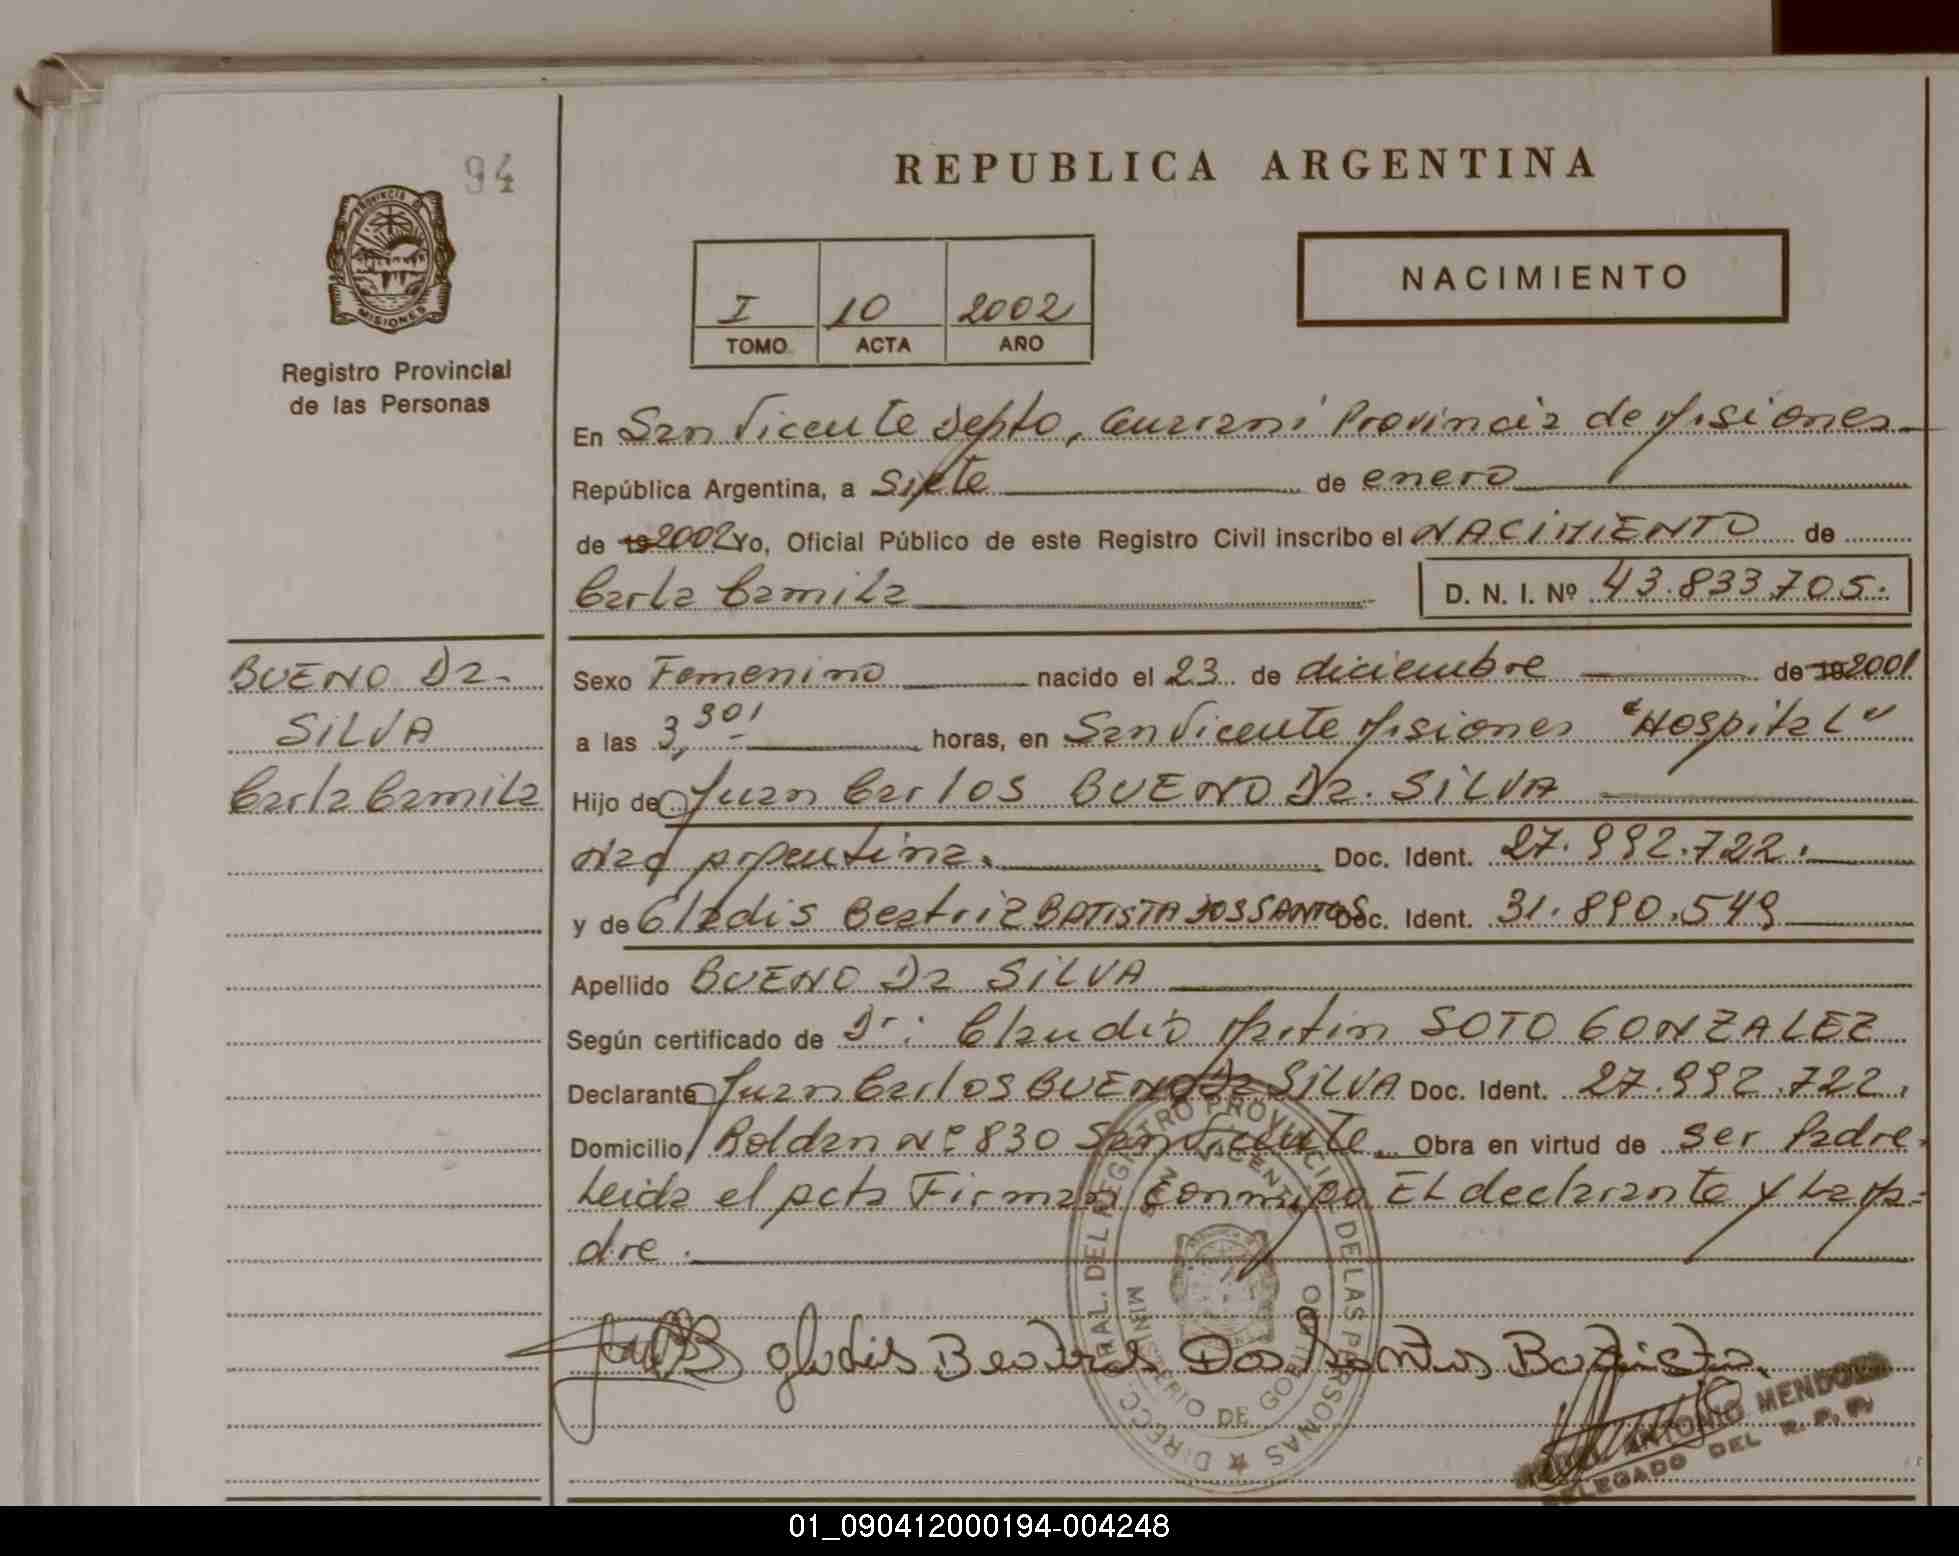 94
REPUBLICA ARGENTINA
PROVINCIA DE
MISIONES
NACIMIENTO
I 10 2002
TOMO ACTA AÑO
Registro Provincial
de las Personas
En San Vicente Depto, Guarani Provincia de Misiones
República Argentina, a Siete de enero
de 19 2002 Yo, Oficial Público de este Registro Civil inscribo el NACIMIENTO de
Carla Camila D. N. I. Nº 43.833.705.
BUENO Da-
SILVA
Carla Camila
Sexo Femenino nacido el 23 de diciembre de 19 2001
a las 3,30' horas, en San Vicente Misiones "Hospital"
Hijo de Juan Carlos BUENO Da. SILVA
Nac Argentina. Doc. Ident. 27.992.722.
y de Gladis Beatriz BATISTA DOS SANTOS Doc. Ident. 31.890.549
Apellido BUENO Da SILVA
Según certificado de Dr: Claudio Martin SOTO GONZALEZ
Declarante Juan Carlos BUENO Da SILVA Doc. Ident. 27.992.722.
Domicilio Roldan Nº 830 San Vicente. Obra en virtud de ser Padre.
Leida el acta Firman conmigo EL declarante y La Ma=
dre.
DIRECC. GRAL. DEL REGISTRO PROVINCIAL DE LAS PERSONAS
SAN VICENTE
MINISTERIO DE GOBIERNO
gladis Beatris Dos Santos Batista.
ANTONIO MENDOZA
DELEGADO DEL R. P. P.
01_090412000194-004248